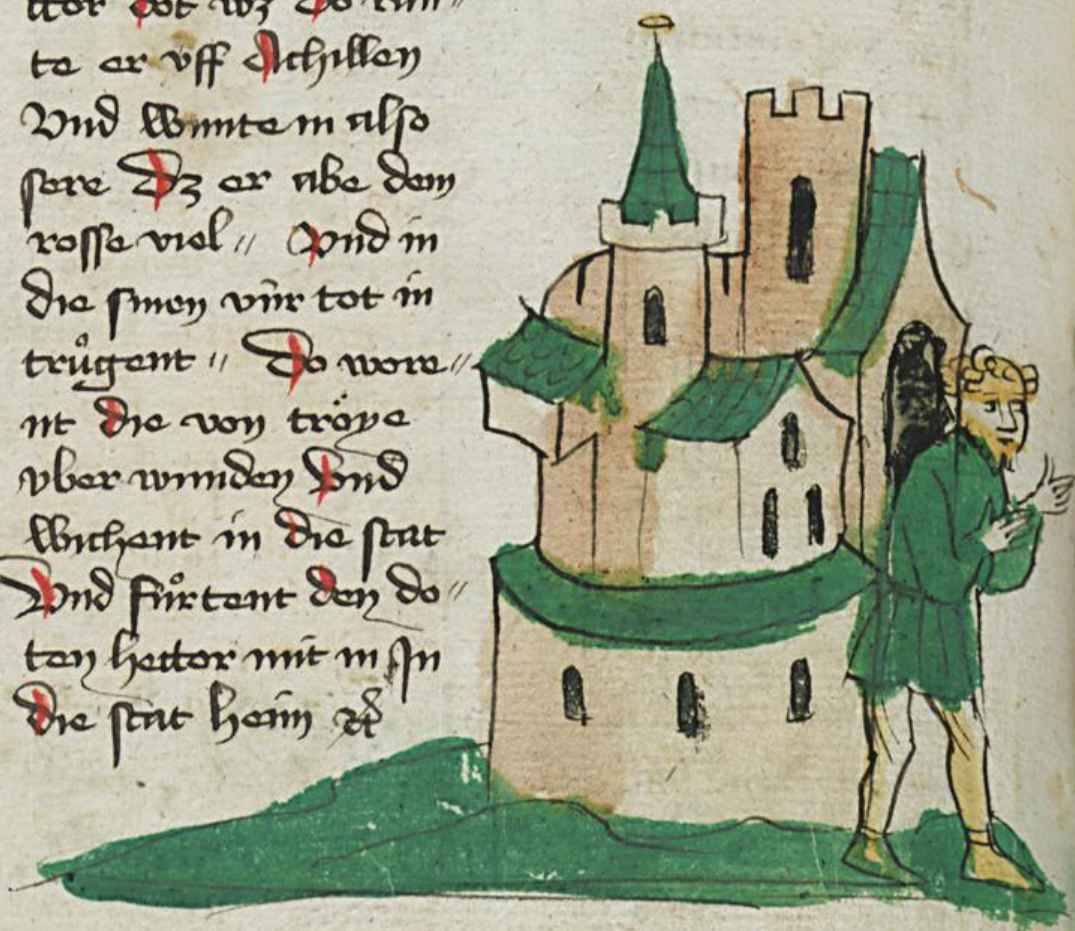 ctor dot wz Do run〃
te er vff Achillen
Vnd wunte in also
sere Dz er abe dem
rosse viel〃 Vnd in
die sinen vúr tot in
trůgent〃 Do wore〃
nt die von tröye
vber wunden Vnd
wichent in die stat
Vnd fůrtent den do〃
ten hector mit in In
die stat heim